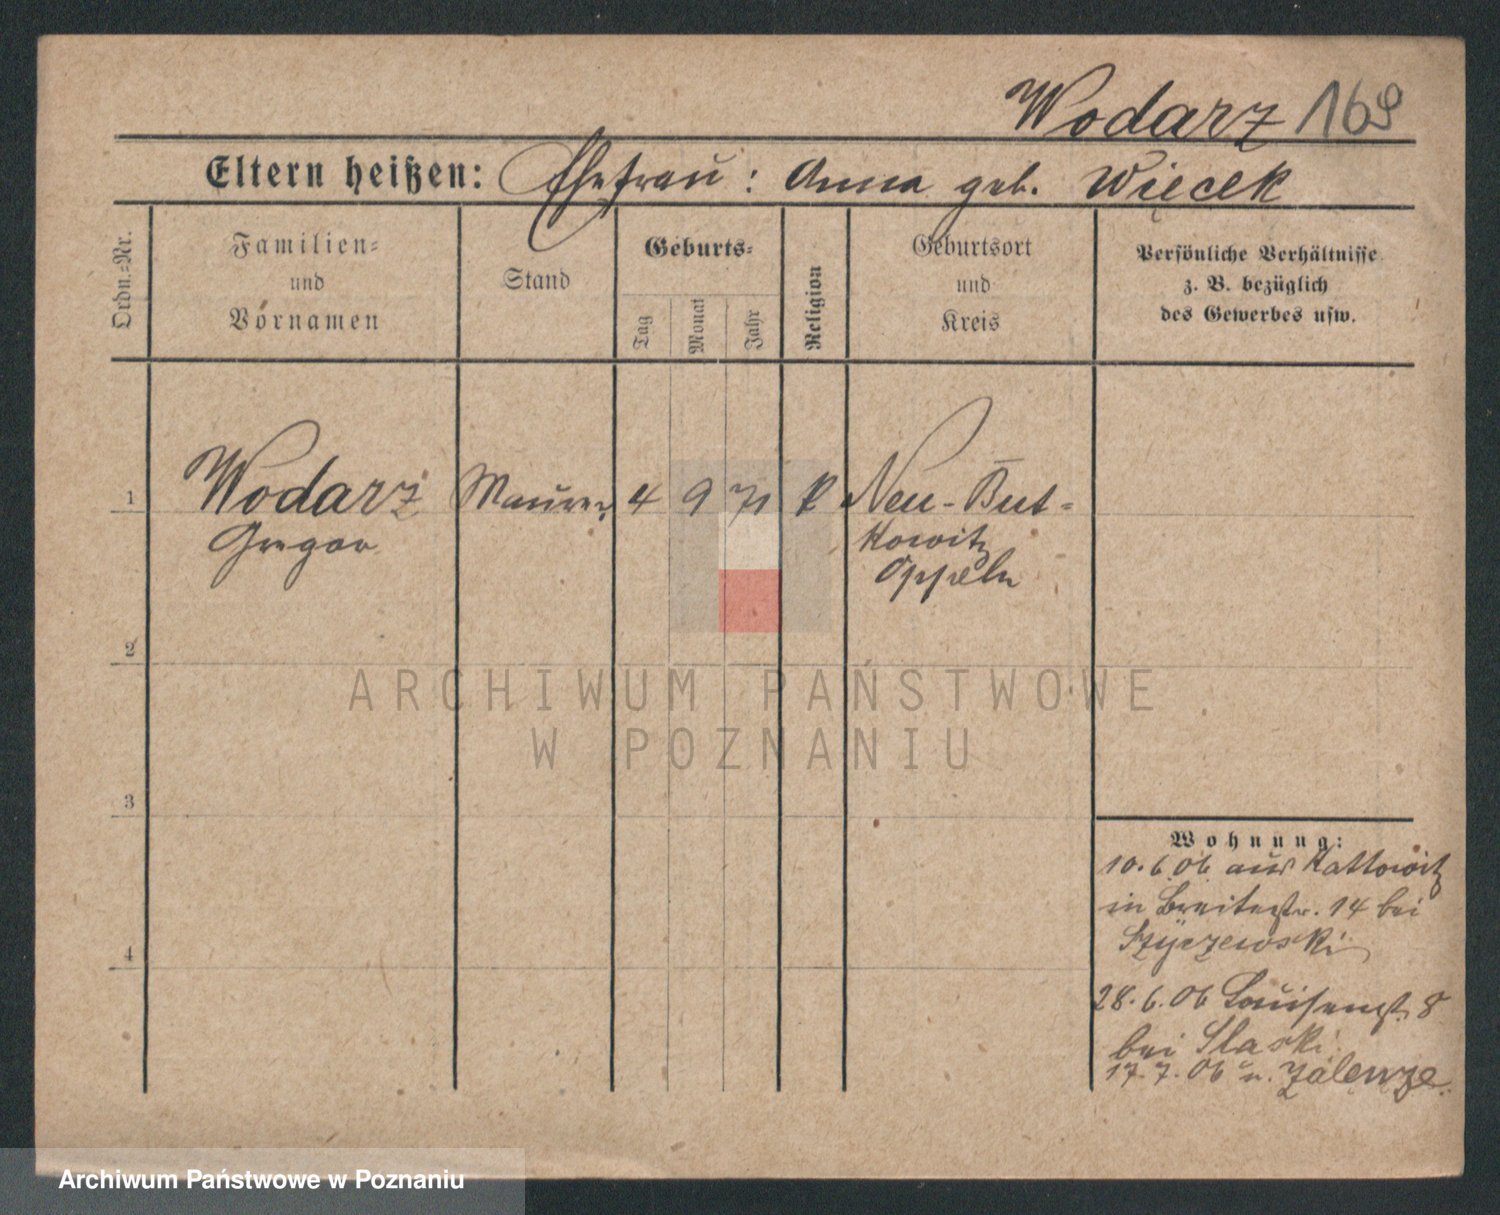 Wodarz 169
Eltern heißen: Ehefrau: Anna geb. Więcek
Ordn.=Nr.
Familien=
und
Vornamen
Stand
Geburts=
Tag
Monat
Jahr
Religion
Geburtsort
und
Kreis
Persönliche Verhältnisse
z. B. bezüglich
des Gewerbes usw.
1 Wodarz Maurer 4 9 71 k Neu-But-
Gregor kowitz
Oppeln
2
3
4
Wohnung:
10.6.06 aus Kattowitz
in Breitestr. 14 bei
Szyczewski
28.6.06 Louisenst. 8
bei Slaski
17.7.06 n. Zalenze
ARCHIWUM PAŃSTWOWE
W POZNANIU
Archiwum Państwowe w Poznaniu